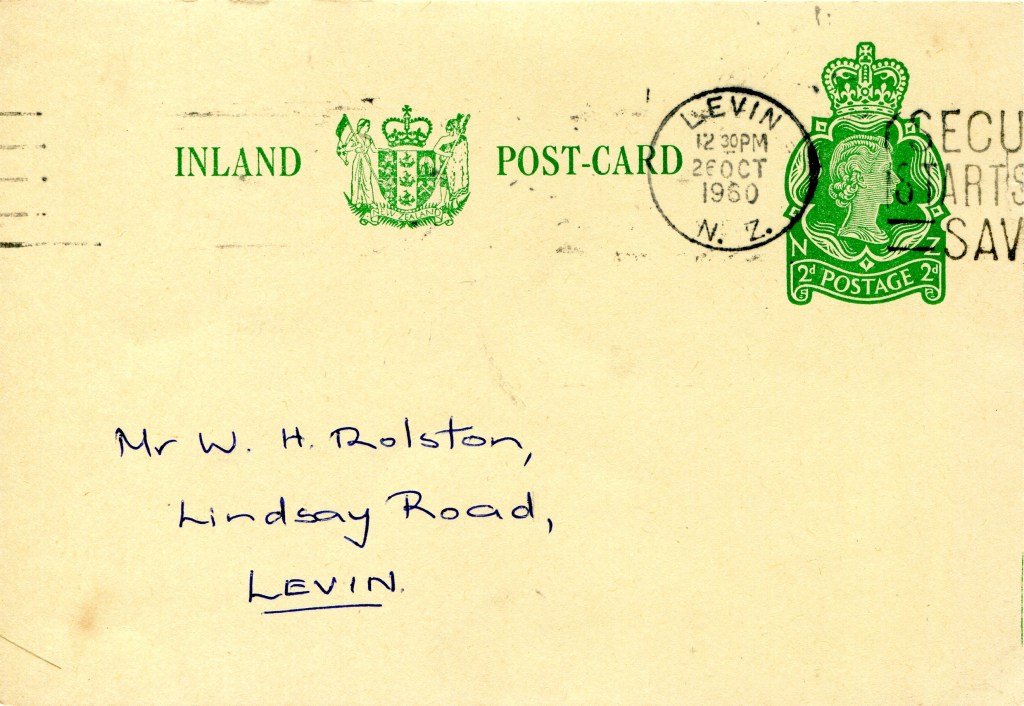 INLAND POST-CARD
NEW ZEALAND
LEVIN
12 30PM
26 OCT
1960
N. Z.
SECU
STARTS
SAV
N Z
2d POSTAGE 2d
Mr W. H. Rolston,
Lindsay Road,
LEVIN.